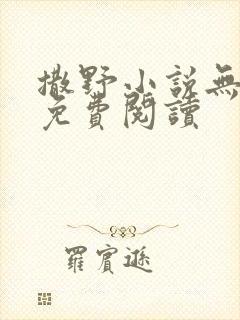 撒野小説無
免費閱讀
羅賓遜